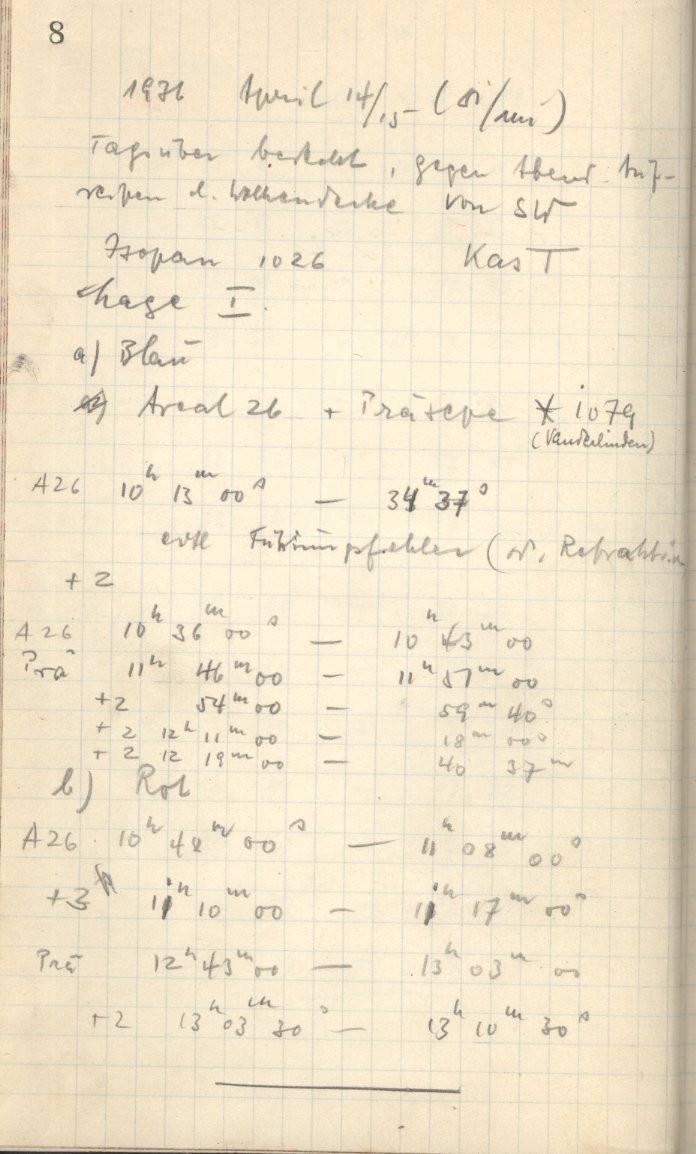 8
1936 April 14/15 (Di/Mi)
Tagsüber bedeckt, gegen Abend Auf-
reißen d. Wolkendecke von SW
Isopan 1026 Kas T
Lage I.
a) Blau
Areal 26 + Präsepe * 1079
(Vanderlinden)
A26 10h 13m 00s — 34m 37s
evtl (od. Refraktion
+2
A26 10h 36m 00s — 10h 43m 00
Prä 11h 46m 00 — 11h 51m 00
+2 54m 00 — 59m 40s
+2 12h 11m 00 — 18m 00s
+2 12 19m 00 — 40 37m
b) Rot
A26 10h 48m 00s — 11h 08m 00s
+3 11h 10m 00 — 11h 17m 00s
Prä 12h 43m 00 — 13h 03m 00
+2 13h 03m 30s — 13h 10m 30s